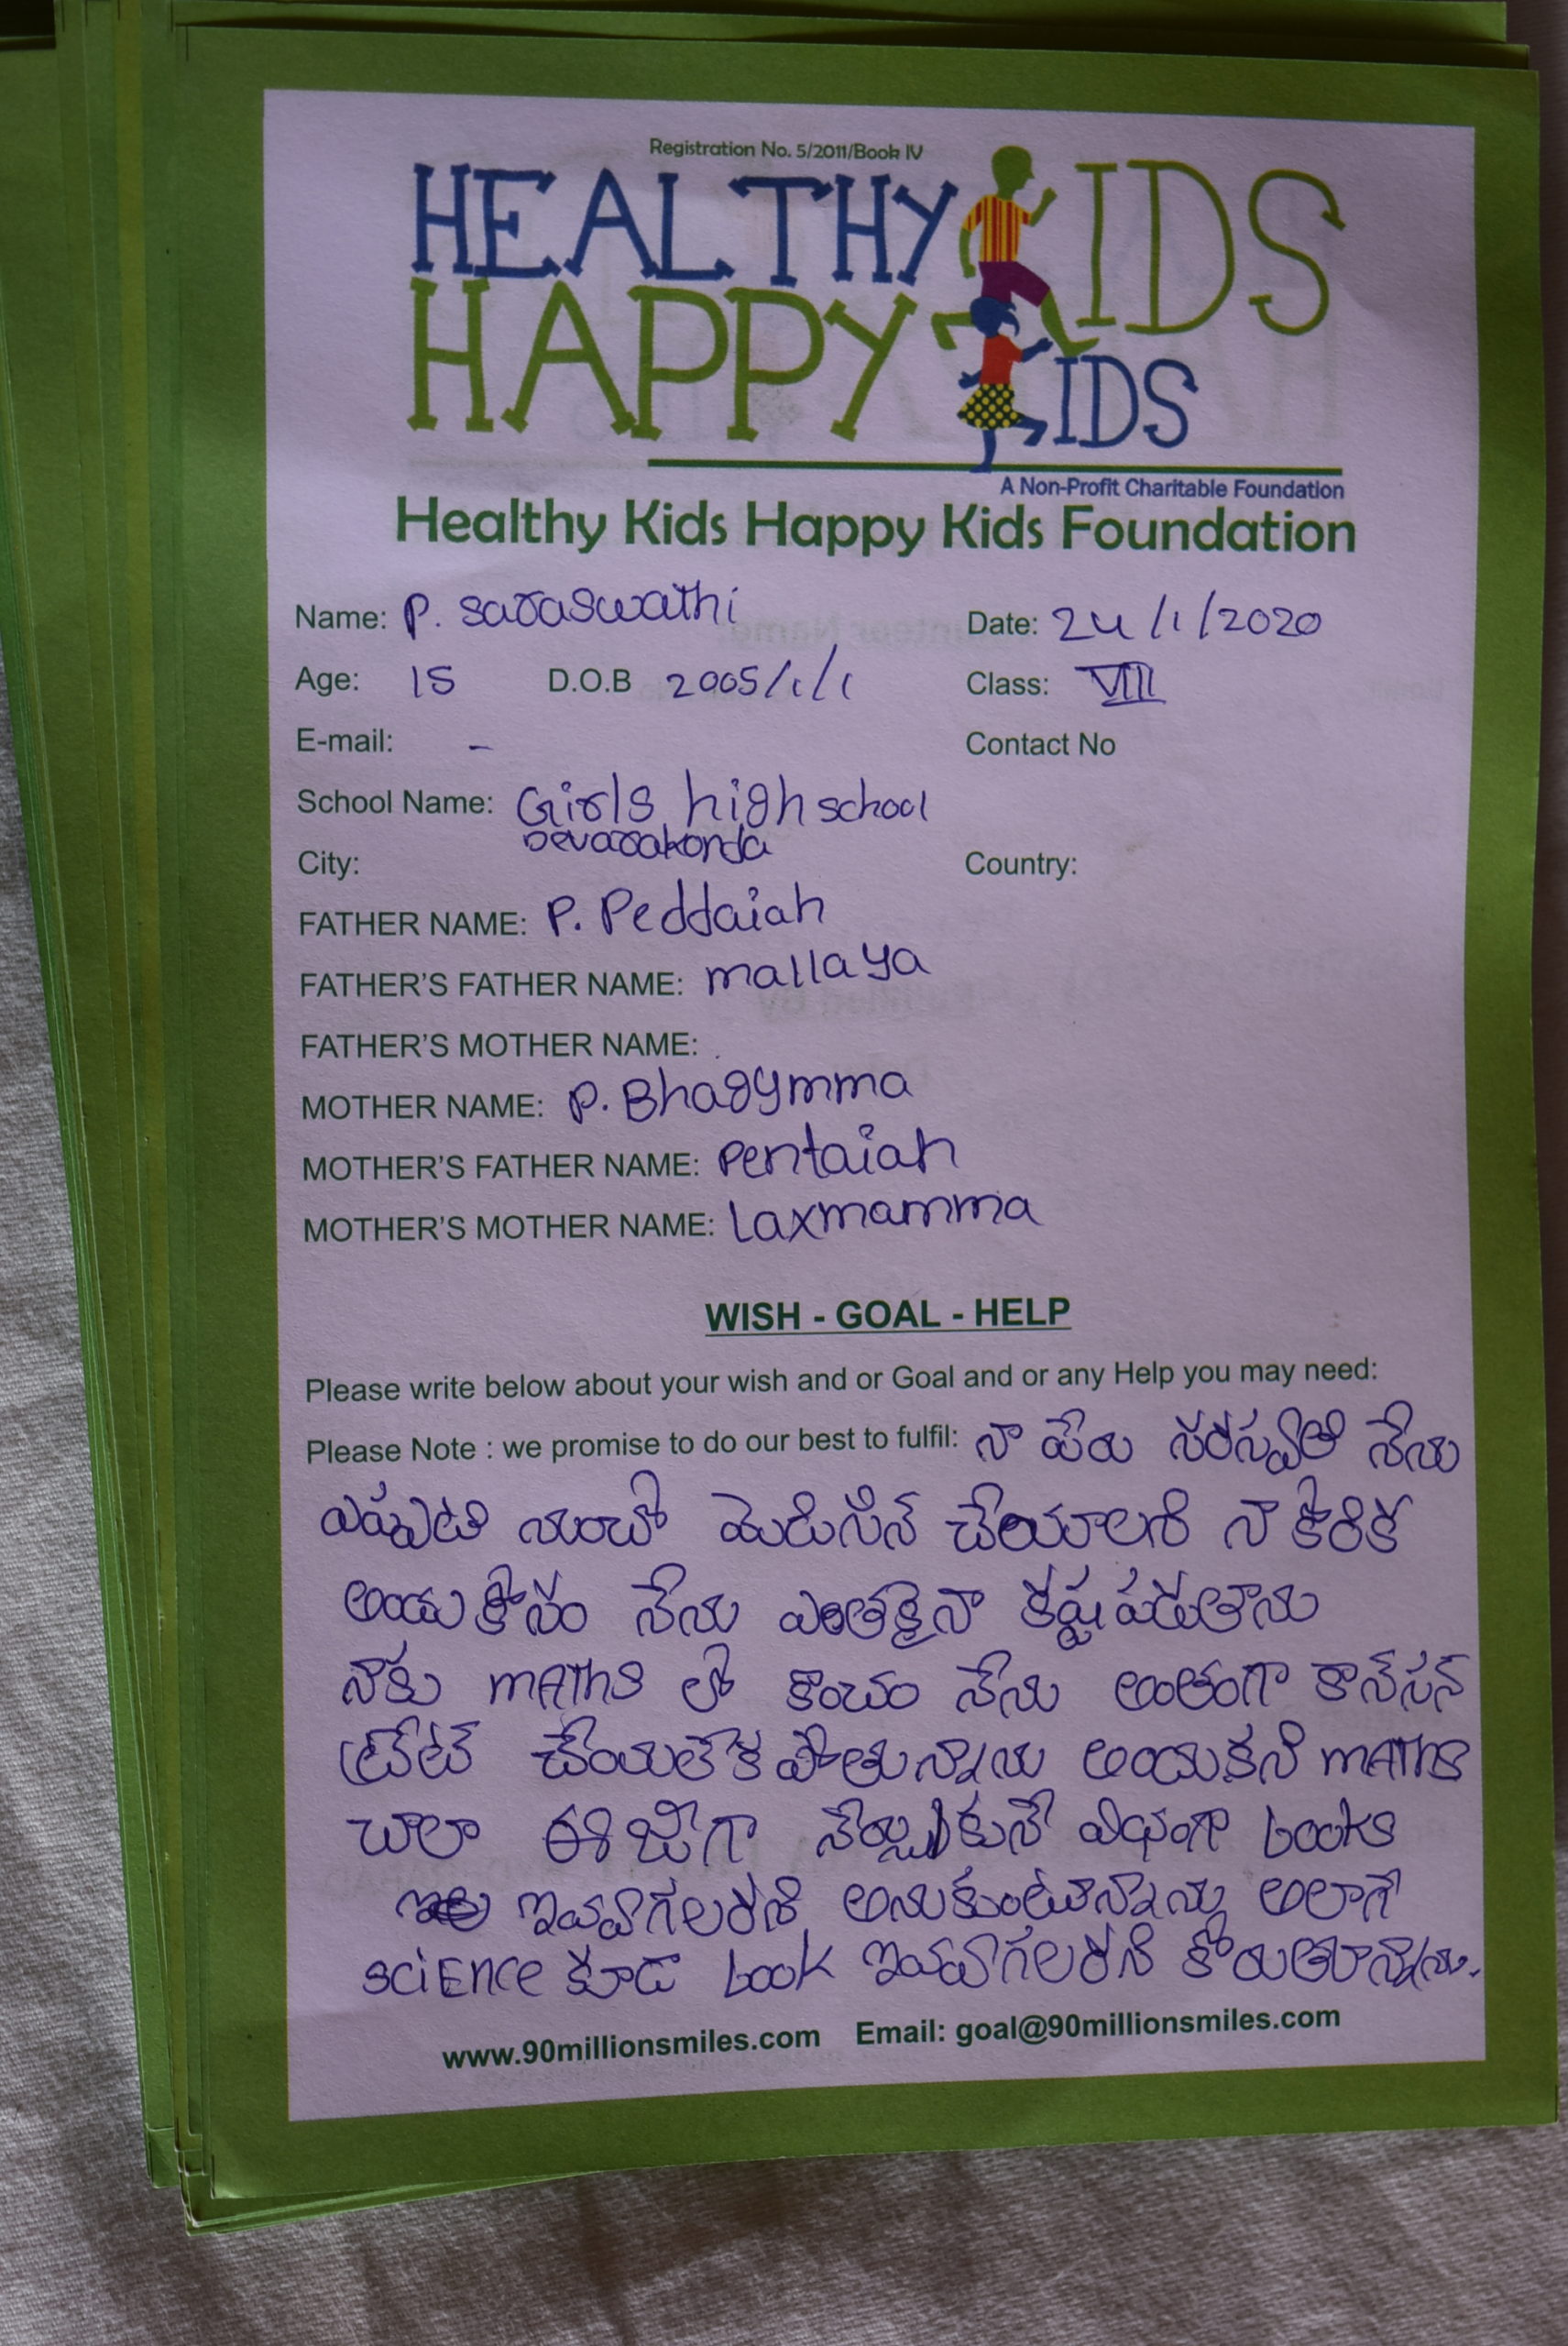 Registration No. 5/2011/Book IV
HEALTHY KIDS
HAPPY KIDS
A Non-Profit Charitable Foundation
Healthy Kids Happy Kids Foundation
Name: P. Saraswathi Date: 24/1/2020
Age: 15 D.O.B 2005/1/1 Class: VIII
E-mail: - Contact No
School Name: Girls high school
Devarakonda
City: Country:
FATHER NAME: P. Peddaiah
FATHER'S FATHER NAME: mallaya
FATHER'S MOTHER NAME:
MOTHER NAME: P. Bhagymma
MOTHER'S FATHER NAME: Pentaiah
MOTHER'S MOTHER NAME: Laxmamma
WISH - GOAL - HELP
Please write below about your wish and or Goal and or any Help you may need:
Please Note : we promise to do our best to fulfil: నా పేరు సరస్వతి నేను
ఎప్పటి నుంచో మెడిసిన్ చేయాలని నా కోరిక
అందుకోసం నేను ఎంతకైనా కష్టపడుతాను
నాకు maths లో కొంచం నేను అంతంగా కాన్సన్
ట్రేట్ చేయలేక పోతున్నాను అందుకని maths
చాలా ఈజీగా నేర్చుకునే విధంగా books
ఇవ్వగలరని అనుకుంటున్నాను అలాగే
science కూడా book ఇవ్వగలరని కోరుతున్నాను.
www.90millionsmiles.com Email: goal@90millionsmiles.com